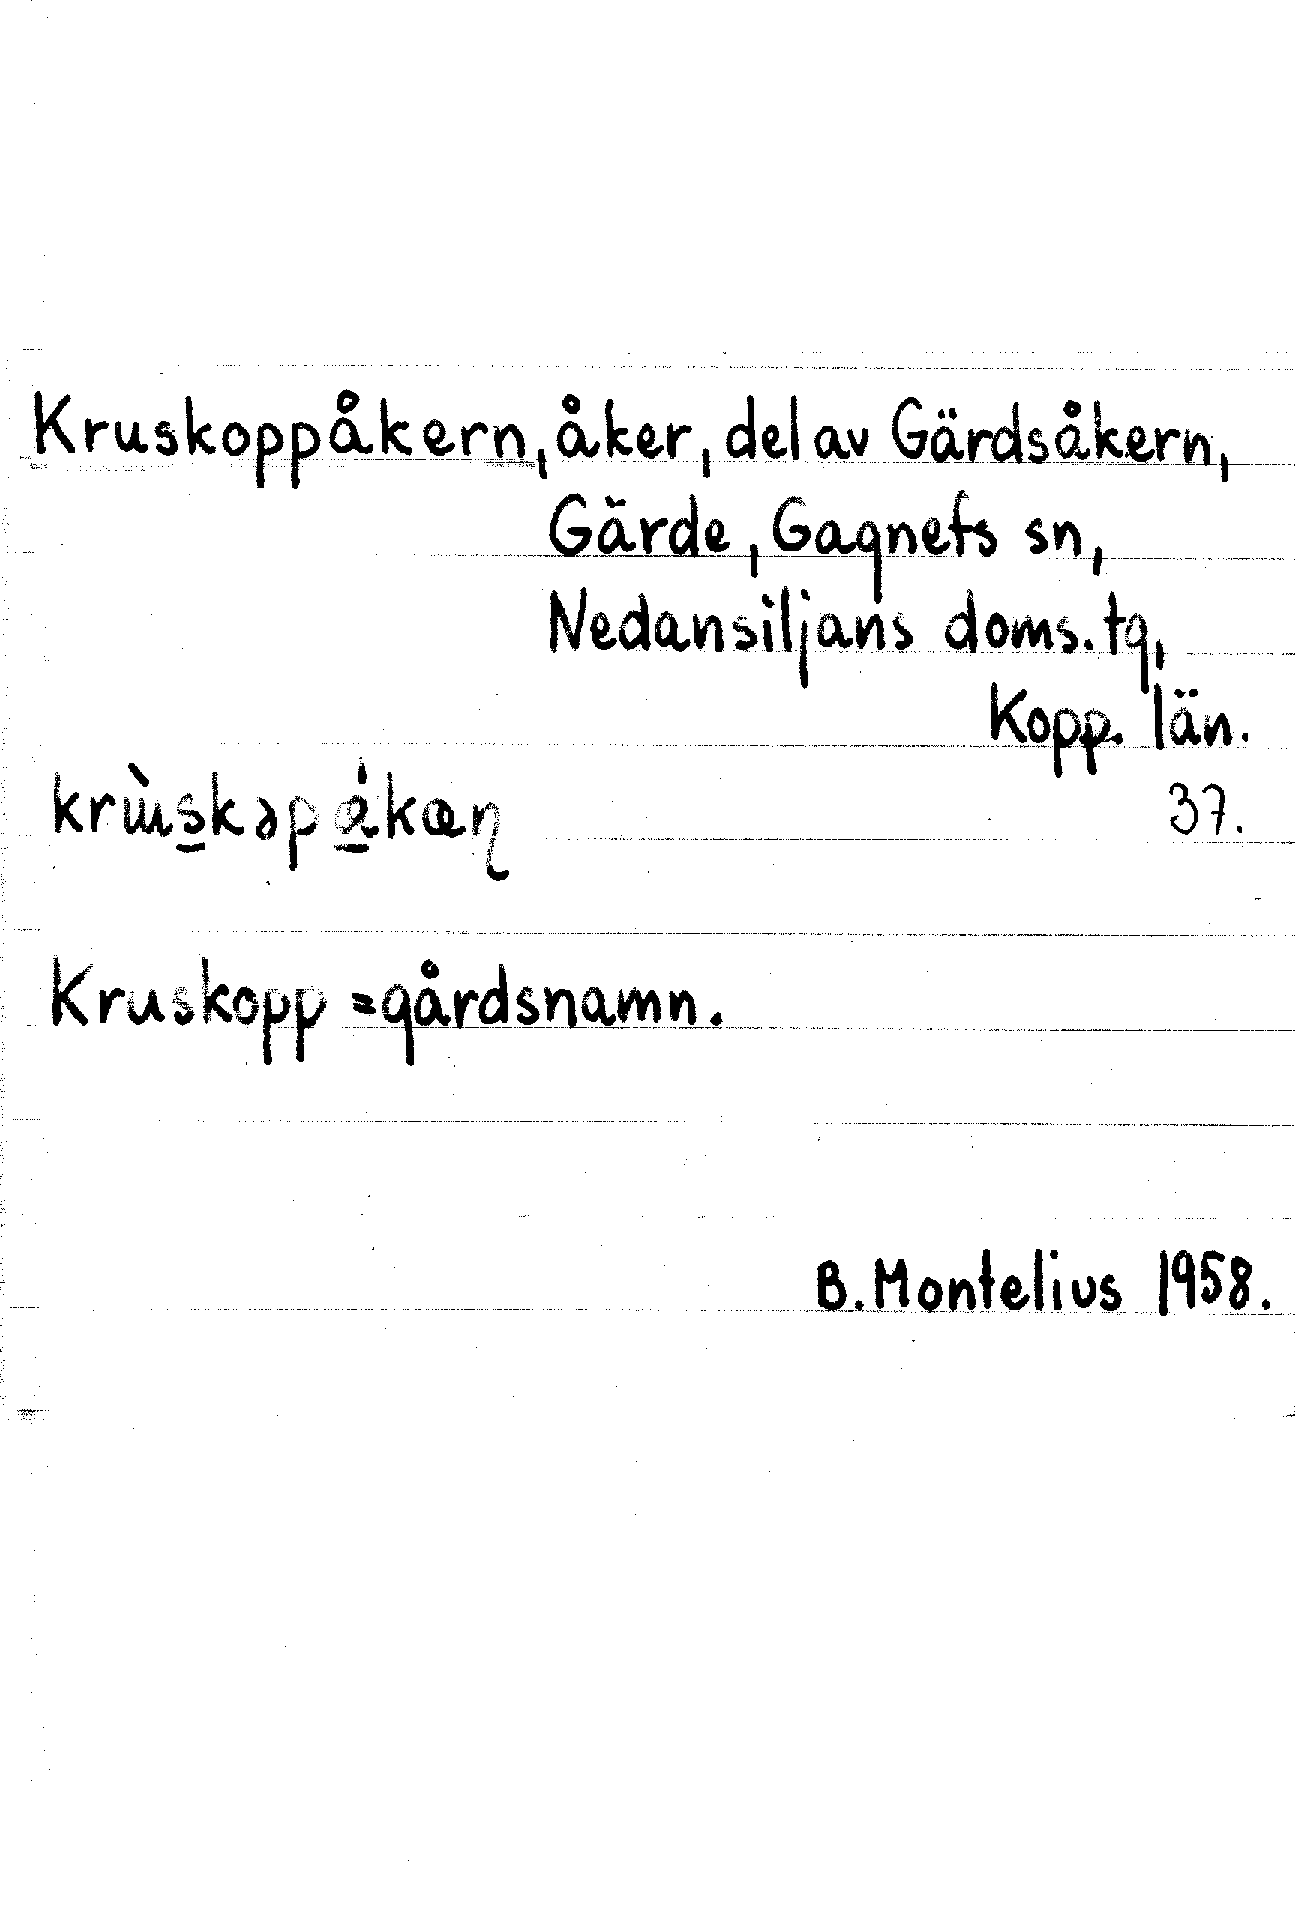 Kruskoppåkern, åker, del av Gärdsåkern,
Gärde, Gagnefs sn,
Nedansiljans doms. tg,
Kopp. län.
37.
Kruskopp = gårdsnamn.
B. Montelius 1958.